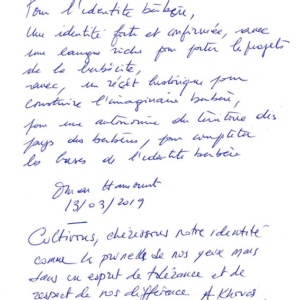 Pour l'identité berbère,
Une identité forte et confirmée, avec
une langue riche pour porter le projet
de la berbérité,
avec, un récit historique pour
construire l'imaginaire berbère,
pour une autonomie du territoire des
pays des berbères, pour compléter
les bases de l'identité berbère
Omar Hamourit
13/03/2019
Cultivons, chérissons notre identité
comme la prunelle de nos yeux mais
dans un esprit de tolérance et de
respect de nos différence A. Khovas